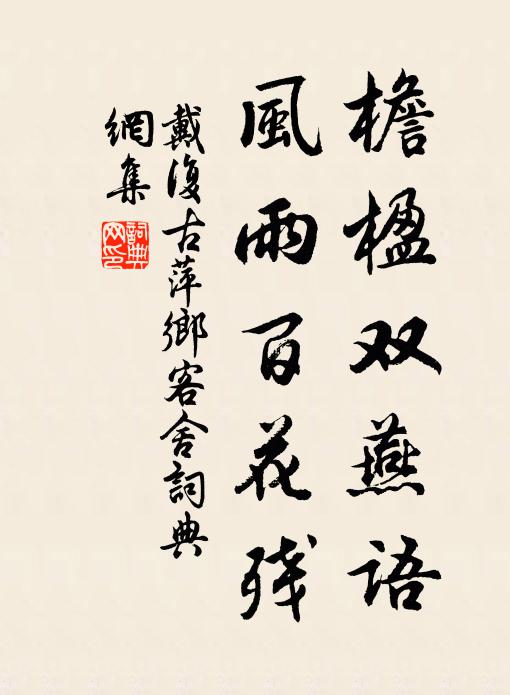 檐楹双燕語
風雨百花残
戴復古萍鄉客舍詞典
網集
詞典
网印